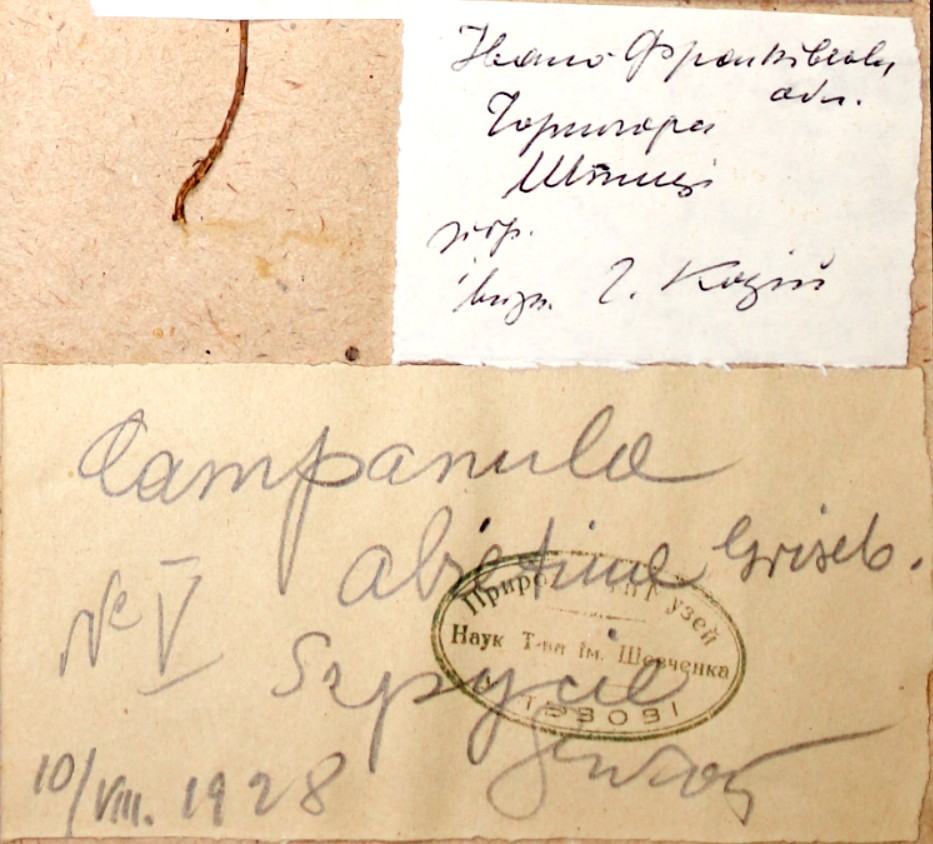 Івано-Франківська
обл.
Чорногора
Шпиці
гербр.
визн. Г. Козій
Campanula
abietina Griseb.
№ V
Szpycie
10/VIII. 1928
Природн. Музей
Наук Т-ва ім. Шевченка
У ЛЬВОВІ